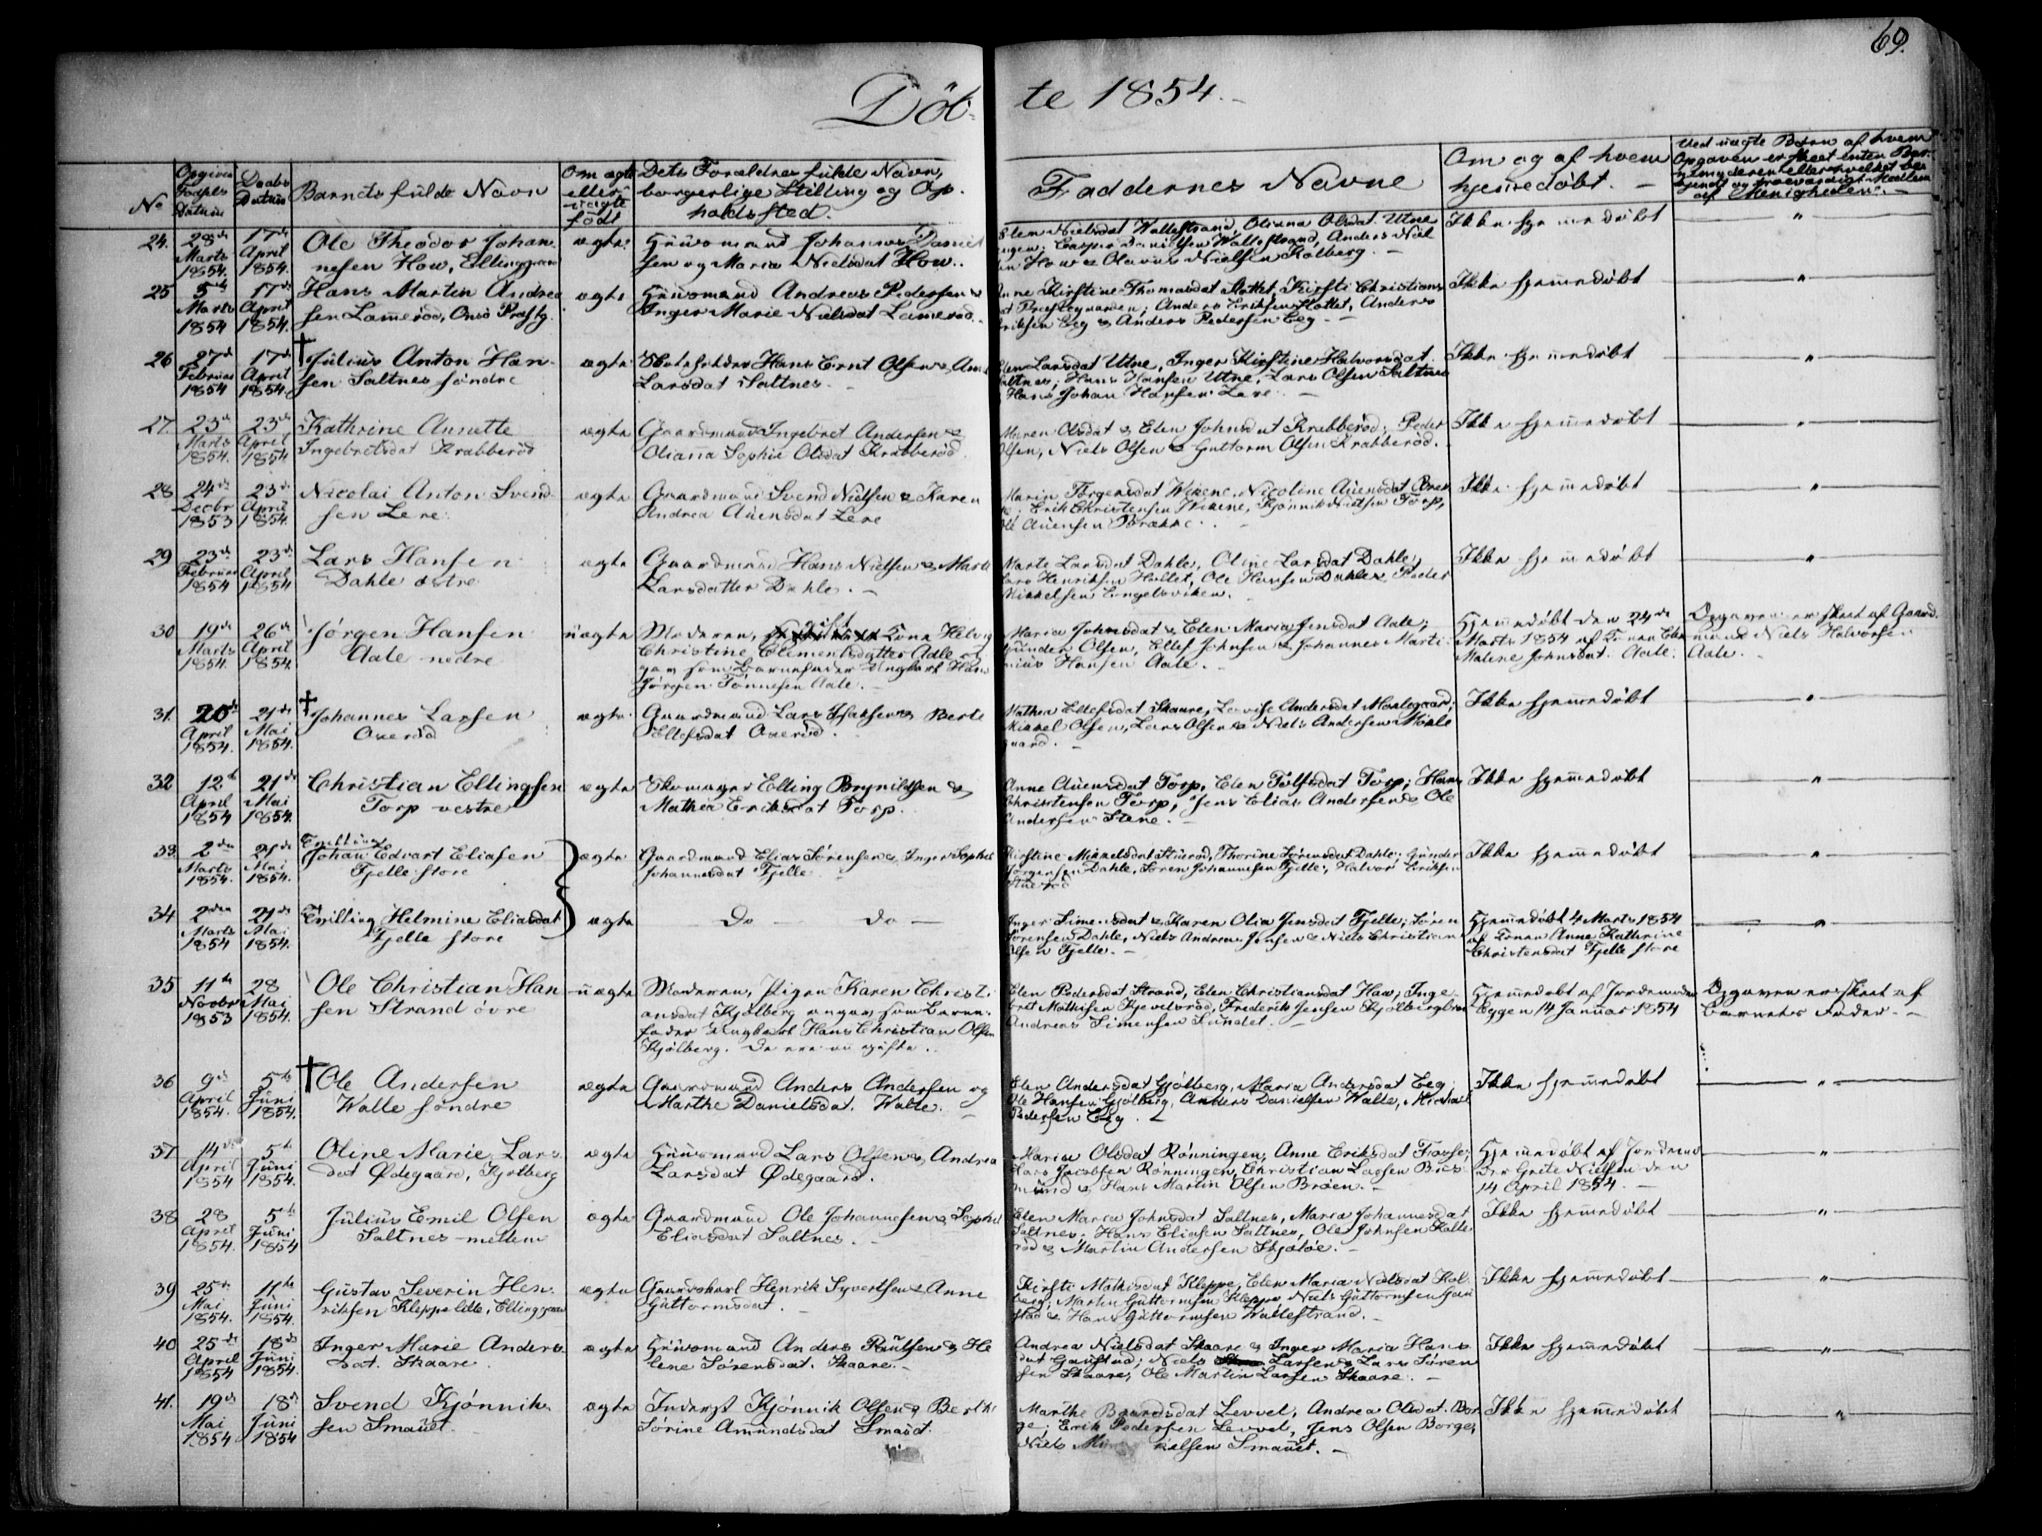 69.
Döbte 1854.
No
Opgiven Fødsels Datum
Daabs Datum
Barnets fulde Navn
Om ægte eller uægte født
Dets Forældres fulde Navn, borgerlige Stilling og Opholdsted.
Faddernes Navne
Om og af hvem hjemedøbt.
Ved uægte Børn af hvem Opgaven er skeet
24. 28de Marts 1854. 17de April 1854.
Ole Theodor Johannesen How, Ellinggaard
ægte
Huusmand Johannes Danielsen og Maria Nielsdat How.
Elen Nielsdat Wallestrand, Oliana Olsdat Utne
Casper Danielsen Wallestrand, Anders Niel
How & Olavus Nielsen Kolberg.
Ikke hjemmedøbt
25 5te Marts 1854 17de April 1854.
Hans Martin Andreasen Lammerød, Onsø Præstg.
ægte
Huusmand Andreas Pedersen & Inger Marie Nielsdat Lamerød.
Anne Kirstine Thomasdat Slottet, Kirsti Christians
dat Præstegaarden; Anders Eriksen Slottet, Anders
Eriksen Eeg & Anders Pedersen Eeg.
Ikke hjemmedøbt
26 27de Februar 1854 17de April 1854.
† Julius Anton Hansen Saltnes søndre
ægte
Skoleholder Hans Ernt Olsen & Larsdat Saltnes.
Elen Larsdat Utne, Inger Kirstine Halvorsdat
Saltnes; Hans Hansen Utne, Lars Olsen Saltnes
Hans Johan Hansen Lere.
Ikke hjemmedøbt
27. 23de Marts 1854. 23de April 1854
Kathrine Annette Ingebretsdat Krabberød
ægte
Gaardmand Ingebret Andersen & Oliana Sophie Olsdat Krabberød
Maren Olsdat & Elen Johnsdat Krabberød; Peder
Olsen, Niels Olsen & Guttorm Olsen Krabberød.
Ikke hjemmedøbt
28 24de Decbr 1853 23de April 1854.
Nicolai Anton Svendsen Lere.
ægte
Gaardmand Svend Nielsen & Karen Andrea Auensdat Lere
Maria Jørgensdat Wikene, Nicoline Auensdat Bræk
ke; Erik Christensen Wikene, Kjønnik Nielsen Torp,
Ole Auensen Brække.
Ikke hjemmedøbt
29 23de Februar 1854 23de April 1854
Lars Hansen Dahle østre
ægte
Gaardmand Hans Nielsen & Marte Larsdatter Dahle.
Marte Larsdat Dahle, Oline Larsdat Dahle;
Lars Henriksen Holtet, Ole Hansen Dahle & Peder
Mikkelsen Engelsviken.
Ikke hjemmedøbt
30 19de Marts 1854. 26de April 1854.
Jørgen Hansen Aale nedre
uægte
Moderen, gift Kone Helvig
Christine Clementsdatter Aale og
gav som Barnefader Ungkarl Hans
Jørgen Tønnesen Aale.
Maria Johnsdat & Elen Maria Jensdat Aale;
Gunder Olsen, Ellef Johnsen & Johannes Marti-
nius Hansen Aale.
Hjemedøbt den 24de
Marts 1854 af Konen Elen
Maline Johnsdat Aale.
Opgaven er skeet af Gaard
mand Niels Halvorsen
Aale.
31. 20de April 1854. 21de Mai 1854.
† Johannes Larsen Oxerød
ægte.
Gaardmand Lars Isaksen & Berte Ellefsdat Oxerød.
Mathea Ellefsdat Skaare, Lovise Andersdat Moslegaard;
Mikkel Olsen, Lars Olsen & Niels Andersen Mosle
gaard.
Ikke hjemmedøbt
32 12te April 1854 21de Mai 1854.
Christian Ellingsen Torp vestre
ægte
Skomager Elling Brynildsen & Mathea Eriksdat Torp.
Anne Auensdat Torp, Elen Tolfsdat Torp; Hans
Christensen Torp, Jens Elias Andersen & Ole
Andersen Stene.
Ikke hjemmedøbt
33 2den Marts 1854. 21de Mai 1854.
Tvilling Johan Edvart Eliasen Fjelle store
ægte
Gaardmand Elias Sørensen & Inger Sophie Johannesdat Fjelle
Kirstine Mikkelsdat Stuerød, Thorine Sørensdat Dahle; Gunder
Jørgensen Dahle, Søren Johannesen Fjelle, Halvor Eriksen
Stuerød
Ikke hjemmedøbt
34 2den Marts 1854 21de Mai 1854.
Tvilling Helmine Eliasdat Fjelle store
ægte
Do — Do —
Inger Simensdat & Karen Olia Jensdat Fjelle; Søren
Sørensen Dahle, Niels Andreas Jensen & Niels Christian
Olsen Fjelle.
Hjemedøbt 4 Marts 1854
af Konen Anne Kathrine
Christensdat Fjelle store
35 11te Novbr 1853 28 Mai 1854.
Ole Christian Hansen Strand övre
uægte
Moderen, Pigen Karen Christi
ansdat Kjølberg angav som Barne-
fader Ungkarl Hans Christian Olsen
Kjølberg. De ere nu gifte.
Elen Pedersdat Strand, Elen Christiansdat Haw; Inge
bret Mathisen Kjevelsrød, Frederik Jensen Kjølberg
Andreas Simensen Sundet.
Hjemedøbt af Jordemoder
Eggen 14 Januar 1854
Opgaven er skeet af
Barnets Fader.
36 9de April 1854. 5te Juni 1854.
† Ole Andersen Walle søndre
ægte
Gaardmand Anders Andersen og Marthe Danielsdat. Walle.
Elen Andersdat Gjølberg, Maria Andersdat Eeg;
Ole Hansen Gjølberg, Anders Danielsen Walle, Mikkel
Pedersen Eeg.
Ikke hjemmedøbt
37. 14de April 1854 5te Juni 1854.
Oline Marie Larsdat Ødegaard, Kjølberg
ægte
Huusmand Lars Olsen & Andrea Larsdat Ødegaard.
Maria Olsdat Rønningen, Anne Eriksdat
Lars Jacobsen Rønningen, Christian Larsen
& Hans Martin Olsen Bröen.
Hjemedøbt af Jordemo
der Grite Nielsen den
14 April 1854.
38 28 April 1854. 5te Juni 1854
Julius Emil Olsen Saltnes mellem
ægte
Gaardmand Ole Johannesen & Sophie Eliasdat Saltnes.
Elen Maria Johnsdat Saltnes, Maria Johannesdat
Saltnes; Hans Eliasen Saltnes, Ole Johnsen
rød & Martin Andersen Skjeløe.
Ikke hjemmedøbt
39 25de Mai 1854. 11te Juni 1854.
Gustav Severin Henriksen Kleppe lille, Ellinggaard
ægte
Gaardskarl Henrik Syvertsen & Anne Guttormsdat.
Kirsti Mathisdat Kleppe, Elen Maria Nielsdat Kol
berg; Martin Guttormsen Kleppe, Niels Guttormsen Gau
stad & Hans Guttormsen Wallestrand.
Ikke hjemmedøbt
40 25de April 1854 18de Juni 1854.
Inger Marie Andersdat. Skaare.
ægte
Huusmand Anders Poulsen & Helene Sørensdat. Skaare.
Andrea Nielsdat Skaare & Inger Maria Hans
dat Gaustad; Niels Larsen & Lars Søren
sen Skaare, Ole Martin Larsen Skaare.
Ikke hjemmedøbt
41. 19de Mai 1854 18de Juni 1854
Svend Kjønniksen Smauet.
ægte
Inderst Kjønnik Olsen & Berthe Sørine Amundsdat Smauet.
Marthe Baardsdat Levvel, Andrea Olsdat Bor
ge; Erik Pedersen Levvel, Jens Olsen Borge,
Niels Nielsen Smauet.
Ikke hjemmedøbt